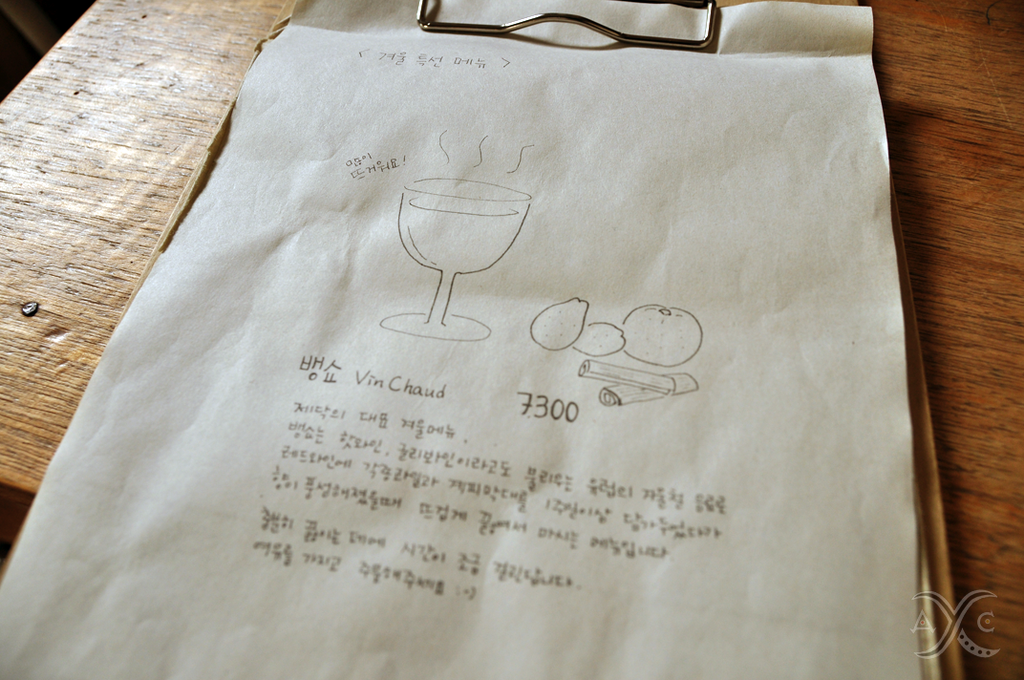 < 겨울 특선 메뉴 >
많이
뜨거워요!
뱅쇼 Vin Chaud
7300
제닥의 대표 겨울메뉴.
뱅쇼는 핫와인, 글리바인이라고도 불리우는 유럽의 겨울철 음료로
레드와인에 각종과일과 계피막대를 1주일이상 담가두었다가
향이 풍성해졌을때 뜨겁게 끓여서 마시는 메뉴입니다.
충분히 끓이는 데에 시간이 조금 걸린답니다.
여유를 가지고 주문해주세요 :)
A C